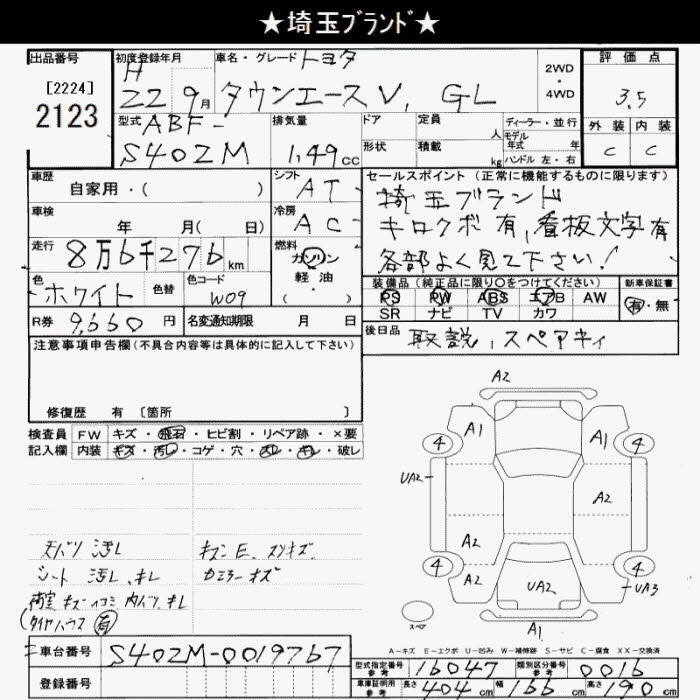 ★埼玉ﾌﾞﾗﾝﾄﾞ★
出品番号
[2224]
2123
初度登録年月
H
22 9月
車名・グレード トヨタ
タウンエースV, GL
2WD
・
4WD
評価点
3.5
外装 内装
C C
型式 ABF-
S402M
排気量
1.49cc
ドア
形状
定員 人
積載 kg
ディーラー・並行
モデル
年式 年
ハンドル 左・右
車歴
自家用・( )
シフト AT
車検
年 月( 日)
冷房 AC
走行 8万6千276km
燃料
ガソリン
軽・油
( )
色
ホワイト
色替
色コード
W09
R券 9,660円
名変通知期限 月 日
セールスポイント (正常に機能するものに限ります)
埼玉ブランド
キロクボ有,看板文字有
各部よく見て下さい!
装備品 (純正品に限り○をつけてください)
PS PW ABS エアB AW
SR ナビ TV カワ
新車保証書
有・無
後日品 取説、スペアキィ
注意事項申告欄 (不具合内容等は具体的に記入して下さい)
修復歴 有 [箇所 ]
検査員 FW キズ・飛石・ヒビ割・リペア跡・×要
記入欄 内装 キズ・汚レ・コゲ・穴・スレ・キレ・破レ
天バリ 汚レ
シート 汚レ.キレ
荷室 キズ イコミ 内バリ.キレ
(タイヤハウス 有)
キズンE、スリキズ
A2
A1 A1
4 4
UA2
A2
A2
A2
4 4
UA2
UA3
A1
スペア
A-キズ E-エクボ U-凹み W-補修跡 S-サビ C-腐食 XX-交換済
車台番号 S402M-0019767
登録番号
型式指定番号
参考
16047
類別区分番号
参考
0016
車庫証明用
参考
長さ 404cm 幅 166cm 高さ 190cm